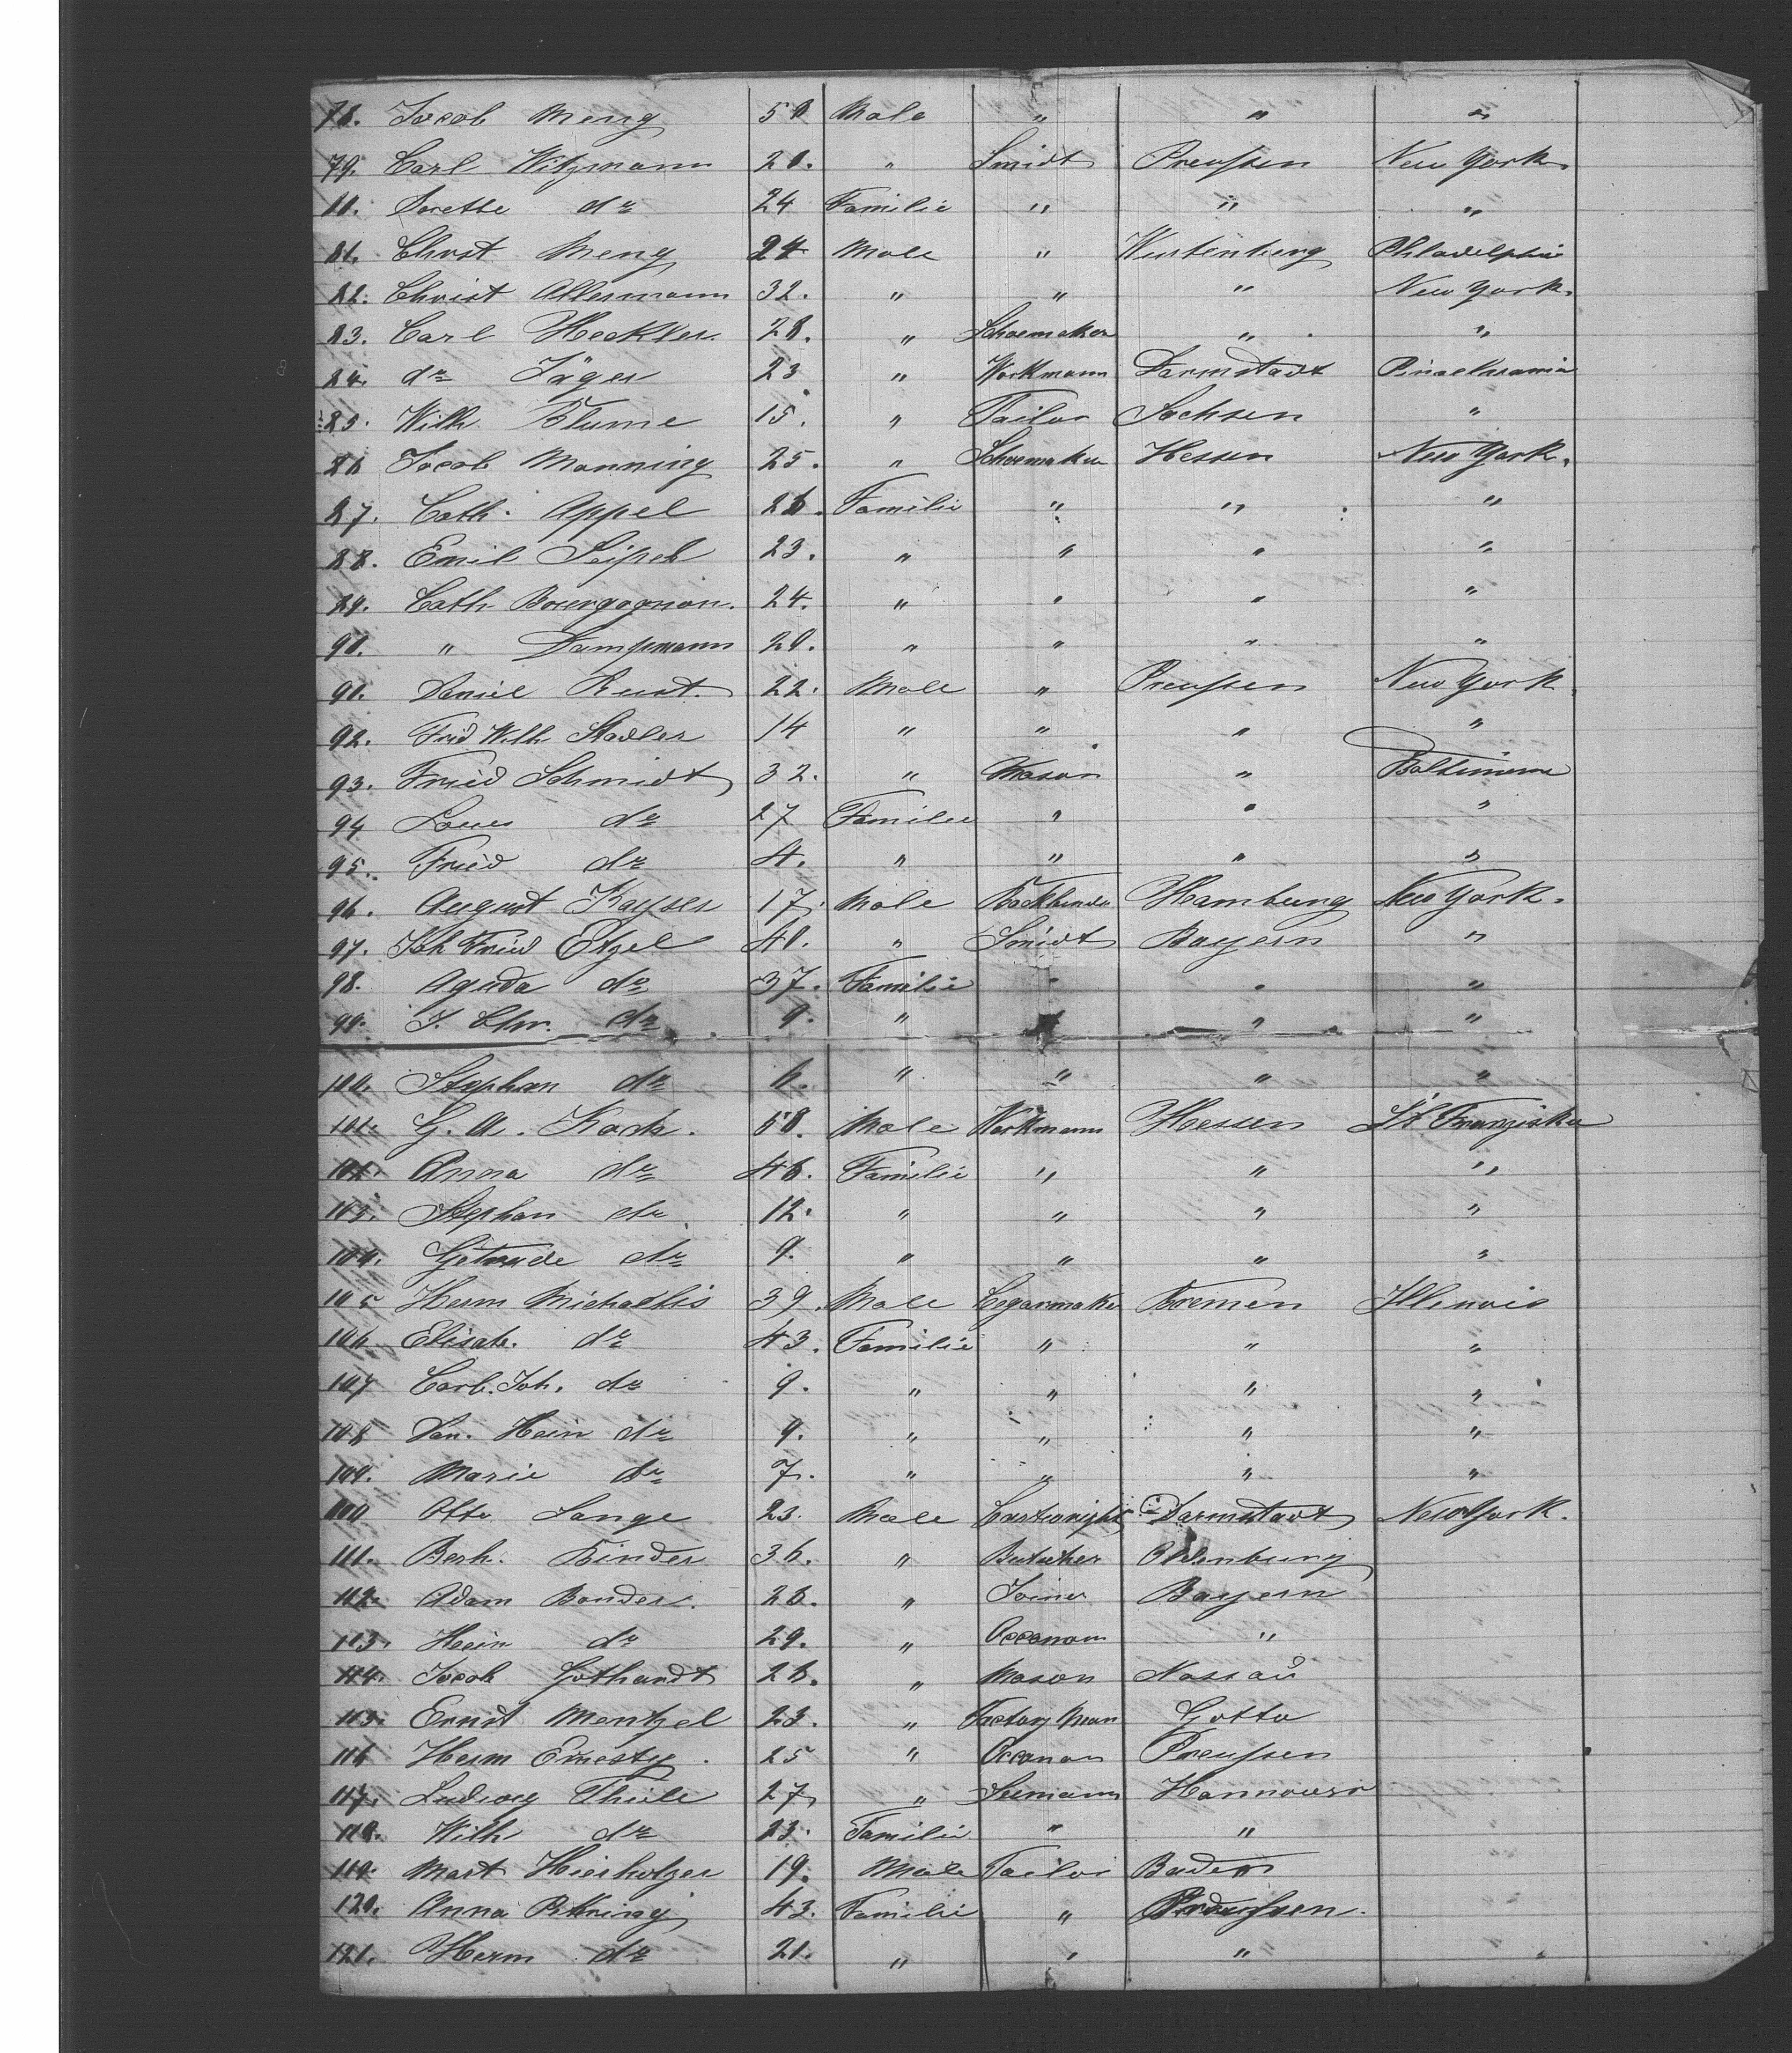 78. Jacob Meng 50 Male " " "
79. Carl Witzmann 28. " Smidt Preussen New York.
80. Dorette do 24 Familie " " "
81. Christ Meng 24 Male " Wurtenberg Philadelphia
82. Christ Allermann 32. " " " New York.
83. Carl Heckler. 28. " Schoemaker " "
84. do Jäger 23 " Workmann Darmstadt
85. Wilh. Blume 15. " Tailor Sachsen "
86 Jacob Manning 25. " Schoemaker Hessen New York.
87. Cath. Appel 26. Familie " " "
88. Emil Seipel 23. " " " "
89. Cath Bourgognon. 24. " " " "
90. " Dampmann 20. " " " "
91. Daniel Rust. 22. Male " Preussen New York
92. Fried Wilh. Stadler 14 " " " "
93. Fried Schmidt 32. " Mason " Baltimore
94 Loues do 27 Familie " " "
95. Fried do 4. " " " "
96. August Kayser 17. Male Hamburg New York.
97. Joh Fried Etzel 40. " Smidt Bayern "
98. Aguda do 37. Familie " " "
99. J. Chr. do 9. " " " "
100. Stephan do 6. " " " "
101. G. A. Koch. 50. Male Workmann Hessen St Franzisko
102. Anna do 46. Familie " " "
103. Stephan do 12. " " " "
104. Getrude do 9. " " " "
105 Herm Michaelis 39. Male Cegarmaker Bremen Illinois
106 Elisab. do 43. Familie " " "
107 Carl. Joh. do 9. " " " "
108 Dan. Hein do 9. " " " "
109. Marie do 7. " " " "
100 Otto Lange 23. Male Cartwright Darmstadt New York.
111. Berh. Binder 36. " Butcher Oldenburg
112. Adam Bander. 26. " Joiner Bayern
113. Hein do 29. " Oeconom "
114. Jacob Gothardt 26. " Mason Nassau
115. Ernst Mentzel 23. " Factory Man Gotta
116 Herm Ernesty. 25 " Oeconom Preussen
117. Ludwig Thiele 27 " Seemann Hannover
118. Wilh do 23. Familie " "
119. Mart Hierholzer 19. Male Tailor Baden
120. Anna 43. Familie " Preussen.
121. Herm do 21. " " "